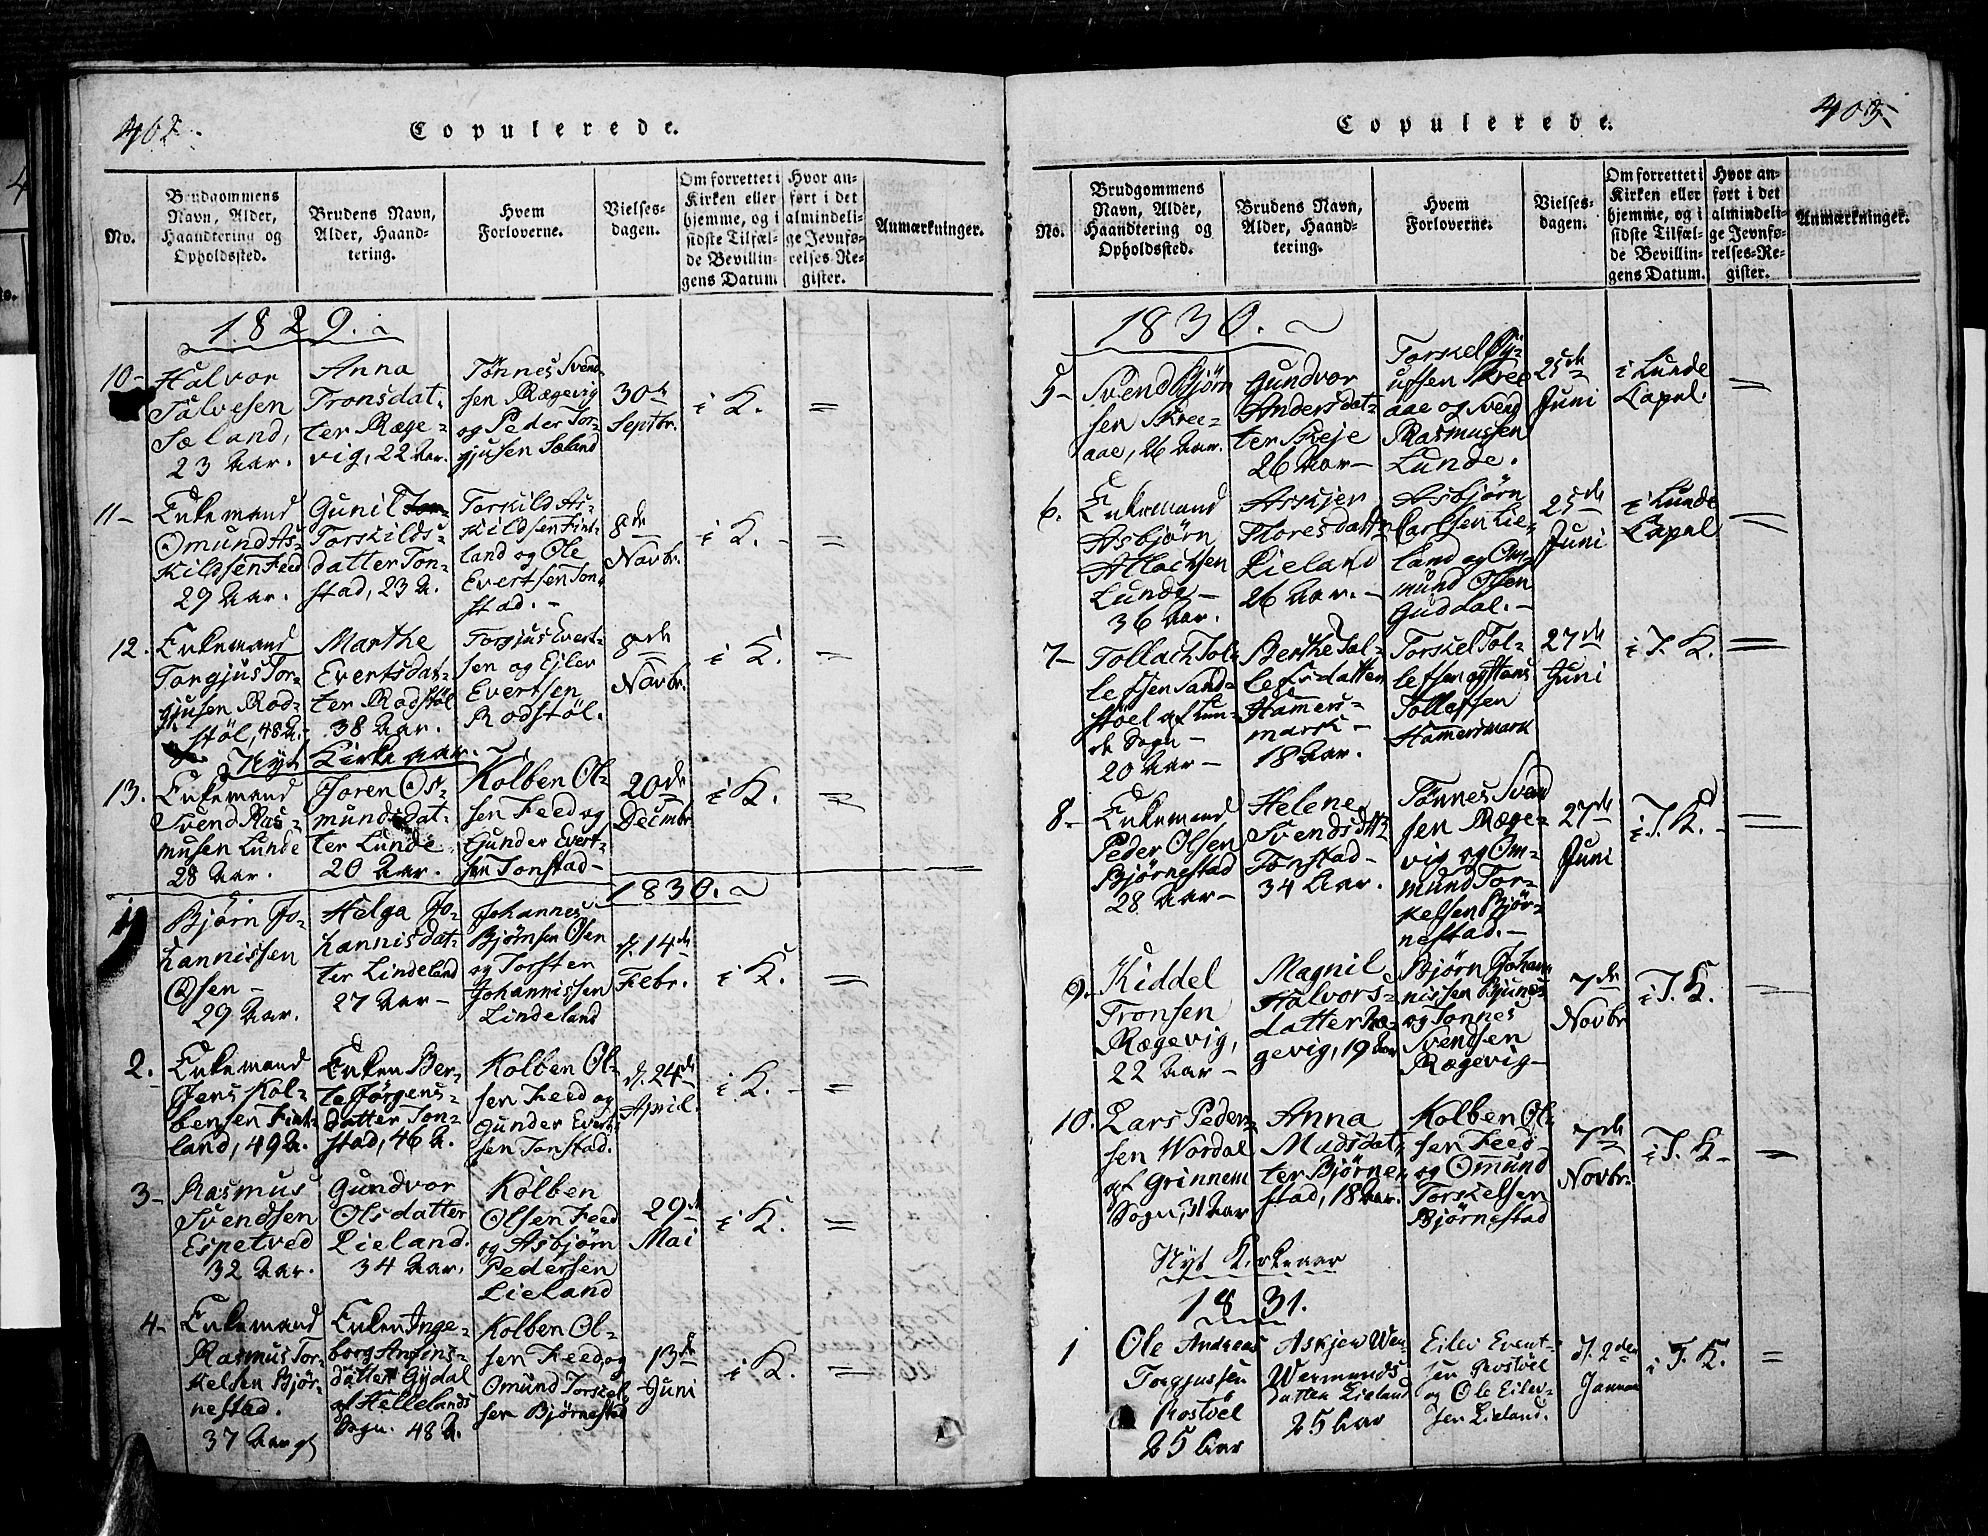 402.
Copulerede.
No.
Brudgommens
Navn, Alder,
Haandtering og
Opholdssted.
Brudens Navn,
Alder, Haand-
tering.
Hvem
Forloverne.
Vielses-
dagen.
Om forrettet i
Kirken eller
hjemme, og i
sidste Tilfæl-
de Bevillin-
gens Datum
Hvor an-
ført i det
almindeli-
ge Jevnfø-
relses-Re-
gister.
Anmærkninger.
1829.
10-
Halvor
Salvesen
Sæland,
23 Aar.
Anna
Tronsdat-
ter Ræge-
vig, 22 Aar.
Tønnes Svend-
sen Rægevig
og Peder Tor-
gjusen Sæland
30te
Septbr.
i K.
=
11-
Enkemand
Omund As-
kildsen Feed
29 Aar.
Gunil
Torskilds-
datter Ton-
stad, 23 A.
Torskild As-
kildsen Fint-
land og Ole
Evertsen Ton-
stad.-
8de
Novbr.
i K. -
=
12.
Enkemand
Torgjus Tor-
gjusen Rod-
støl, 48 A.
Marthe
Evertsdat-
ter Rodstøl
38 Aar.
Torgjus Evert-
sen og Eiler
Evertsen
Rodstøl.
8de
Novbr.
i K.
=
Nyt Kirkeaar.
13.
Enkemand
Svend Ras-
musen Lunde
28 Aar.
Joren Os-
mundsdat-
ter Lunde
20 Aar.
Kolben Ol-
sen Feed og
Gunder Evert-
sen Tonstad-
20de
Decmbr
i K.
=
1830.
1
Bjørn Jo-
hannissen
Osen-
29 Aar.
Helga Jo-
hannisdat-
ter Lindeland
27 Aar-
Johannes
Bjørnsen Osen
og Torsten
Johannissen
Lindeland
d. 14de
Febr.
i K.
=
2.
Enkemand
Jens Kol-
bensen Fint-
land, 49 A.
Enken Ber-
te Jørgens-
datter Ton-
stad, 46 A.
Kolben Ol-
sen Feed og
Gunder Evert-
sen Tonstad.
d. 24de
April.
i K. -
=
3-
Rasmus
Svendsen
Espetved
32 Aar.
Gundvor
Olsdatter
Lieland.
34 Aar.
Kolben
Olsen Feed
og Asbjørn
Pedersen
Lieland
29de
Mai
i K.
=
4-
Enkemand
Rasmus Tor-
kelsen Bjør-
nestad.
37 Aar
Enken Inge-
borg Anfins-
datter Gydal
af Hellelands
Sogn. 48 A.
Kolben Ol-
sen Feed og
Omund Torskel-
sen Bjørnestad
13de
Juni
i K.
=
403
Copulerede.
No.
Brudgommens
Navn, Alder,
Haandtering og
Opholdssted.
Brudens Navn,
Alder, Haand-
tering.
Hvem
Forloverne.
Vielses-
dagen.
Om forrettet i
Kirken eller
hjemme, og i
sidste Tilfæl-
de Bevillin-
gens Datum.
Hvor an-
ført i det
almindeli-
ge Jevnfø-
relses-Re-
gister.
Anmærkninger.
1830.
5-
Svend Bjørn
sen Skree-
aae, 26 Aar.
Gundvor
Andersdat-
ter Skeje
26 Aar-
Torskel
Skree
aae og Svend
Rasmussen
Lunde.
25de
Juni
i Lunde
Capel.
=
6.
Enkemand
Asbjørn
Atlachsen
Lunde-
36 Aar.
Askjer
Thoresdatter
Lieland
26 Aar.-
Asbjørn
Carlsen Lie-
land og Om-
mund Olsen
Guddal.-
25de
Juni
i Lunde
Capel
=
7-
Tollach Tol-
lefsen Sand-
støel af Lun-
de Sogn-
20 Aar-
Berthe Tol-
lefsdatter
Hamers-
mark-
18 Aar.
Torskel Tol-
lefsen og Hans
Tollefsen
Hamersmark
27de
Juni
i T. K.
=
8-
Enkemand
Peder Olsen
Bjørnestad
28 Aar-
Helene
Svendsdtr
Tonstad-
34 Aar.
Tønnes Svend
sen Ræge-
vig og Om-
mund Tor-
kelsen Bjør-
nestad.-
27de
Juni
i T. K. -
=
9.
Kiddel
Tronsen
Rægevig,
22 Aar-
Magnil
Halvors-
datter Ræ-
gevig, 19 Aar
Bjørn Johan-
nissen
og Tønnes
Svendsen
Rægevig-
7de
Novbr
i T. K.
=
10.
Lars Peder-
sen Wordal
af Grinnem
Sogn, 31 Aar
Anna
Madsdat-
ter Bjørne-
stad, 18 Aar.
Kolben Ol-
sen Feed
og Omund
Torskelsen
Bjørnestad
7de
Novbr.
i T. K-
=
Nyt Kirkeaar
1831.
1
Ole Andreas
Torgjussen
Rostøel
25 Aar
Askjer
Wermunds
Datter Lieland
25 Aar
Eilev Evert-
sen Rostøel
og Ole Eilev-
sen Lieland.
d. 2den
Januar
i T. K.
=